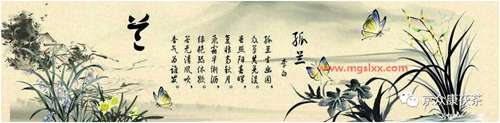 孤兰
李白
孤兰生幽园
众草共芜没
虽照阳春晖
复悲高秋月
飞霜早淅沥
绿艳恐休歇
若无清风吹
香气为谁发
兰
www.mgslxx.com
京众康茯茶